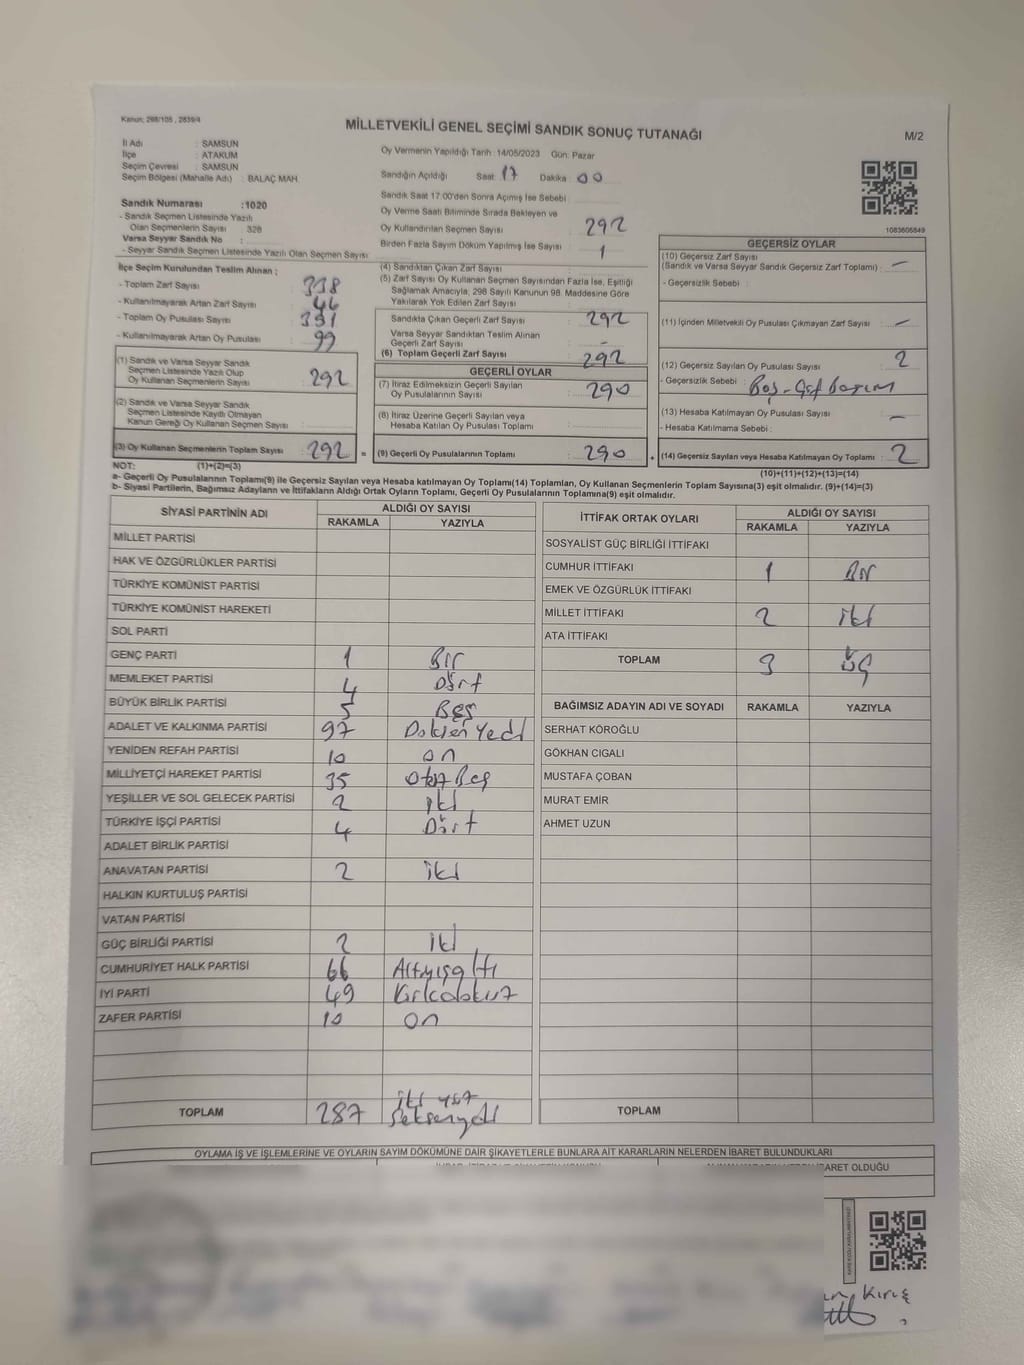 Kanun: 298/105 , 2839/4
MİLLETVEKİLİ GENEL SEÇİMİ SANDIK SONUÇ TUTANAĞI
M/2
İl Adı : SAMSUN
İlçe : ATAKUM
Seçim Çevresi : SAMSUN
Seçim Bölgesi (Mahalle Adı) : BALAÇ MAH.
Oy Vermenin Yapıldığı Tarih :14/05/2023 Gün: Pazar
Sandığın Açıldığı Saat : 17 Dakika : 00
Sandık Saat 17:00'den Sonra Açımış İse Sebebi :
Sandık Numarası :1020
- Sandık Seçmen Listesinde Yazılı
Olan Seçmenlerin Sayısı : 328
Varsa Seyyar Sandık No :
- Seyyar Sandık Seçmen Listesinde Yazılı Olan Seçmen Sayısı :
Oy Verme Saati Bitiminde Sırada Bekleyen ve
Oy Kullandırılan Seçmen Sayısı : 292
Birden Fazla Sayım Döküm Yapılmış İse Sayısı : 1
1083605849
İlçe Seçim Kurulundan Teslim Alınan ;
- Toplam Zarf Sayısı : 338
- Kullanılmayarak Artan Zarf Sayısı : 46
- Toplam Oy Pusulası Sayısı : 391
- Kullanılmayarak Artan Oy Pusulası : 99
(1) Sandık ve Varsa Seyyar Sandık
Seçmen Listesinde Yazılı Olup
Oy Kullanan Seçmenlerin Sayısı : 292
(2) Sandık ve Varsa Seyyar Sandık
Seçmen Listesinde Kayıtlı Olmayan
Kanun Gereği Oy Kullanan Seçmen Sayısı :
(3) Oy Kullanan Seçmenlerin Toplam Sayısı : 292 =
(4) Sandıktan Çıkan Zarf Sayısı :
(5) Zarf Sayısı Oy Kullanan Seçmen Sayısından Fazla İse, Eşitliği
Sağlamak Amacıyla, 298 Sayılı Kanunun 98. Maddesine Göre
Yakılarak Yok Edilen Zarf Sayısı :
Sandıkta Çıkan Geçerli Zarf Sayısı : 292
Varsa Seyyar Sandıktan Teslim Alınan
Geçerli Zarf Sayısı : -
(6) Toplam Geçerli Zarf Sayısı : 292
GEÇERLİ OYLAR
(7) İtiraz Edilmeksizin Geçerli Sayılan
Oy Pusulalarının Sayısı : 290
(8) İtiraz Üzerine Geçerli Sayılan veya
Hesaba Katılan Oy Pusulası Toplamı :
(9) Geçerli Oy Pusulalarının Toplamı : 290 +
GEÇERSİZ OYLAR
(10) Geçersiz Zarf Sayısı
(Sandık ve Varsa Seyyar Sandık Geçersiz Zarf Toplamı) : -
- Geçersizlik Sebebi :
(11) İçinden Milletvekili Oy Pusulası Çıkmayan Zarf Sayısı : -
(12) Geçersiz Sayılan Oy Pusulası Sayısı : 2
- Geçersizlik Sebebi : Boş - Çift Basım
(13) Hesaba Katılmayan Oy Pusulası Sayısı : -
- Hesaba Katılmama Sebebi :
(14) Geçersiz Sayılan veya Hesaba Katılmayan Oy Toplamı : 2
NOT: (1)+(2)=(3)
(10)+(11)+(12)+(13)=(14)
a- Geçerli Oy Pusulalarının Toplamı(9) ile Geçersiz Sayılan veya Hesaba katılmayan Oy Toplamı(14) Toplamları, Oy Kullanan Seçmenlerin Toplam Sayısına(3) eşit olmalıdır. (9)+(14)=(3)
b- Siyasi Partilerin, Bağımsız Adayların ve İttifakların Aldığı Ortak Oyların Toplamı, Geçerli Oy Pusulalarının Toplamına(9) eşit olmalıdır.
SİYASİ PARTİNİN ADI ALDIĞI OY SAYISI
RAKAMLA YAZIYLA
MİLLET PARTİSİ
HAK VE ÖZGÜRLÜKLER PARTİSİ
TÜRKİYE KOMÜNİST PARTİSİ
TÜRKİYE KOMÜNİST HAREKETİ
SOL PARTİ
GENÇ PARTİ 1 Bir
MEMLEKET PARTİSİ 4 Dört
BÜYÜK BİRLİK PARTİSİ 5 Beş
ADALET VE KALKINMA PARTİSİ 97 Doksan Yedi
YENİDEN REFAH PARTİSİ 10 on
MİLLİYETÇİ HAREKET PARTİSİ 35 Otuz Beş
YEŞİLLER VE SOL GELECEK PARTİSİ 2 iki
TÜRKİYE İŞÇİ PARTİSİ 4 Dört
ADALET BİRLİK PARTİSİ
ANAVATAN PARTİSİ 2 iki
HALKIN KURTULUŞ PARTİSİ
VATAN PARTİSİ
GÜÇ BİRLİĞİ PARTİSİ 2 iki
CUMHURİYET HALK PARTİSİ 66 Altmışaltı
İYİ PARTİ 49 Kırkdokuz
ZAFER PARTİSİ 10 on
TOPLAM 287 iki yüz
Seksenyedi
İTTİFAK ORTAK OYLARI ALDIĞI OY SAYISI
RAKAMLA YAZIYLA
SOSYALİST GÜÇ BİRLİĞİ İTTİFAKI
CUMHUR İTTİFAKI 1 Bir
EMEK VE ÖZGÜRLÜK İTTİFAKI
MİLLET İTTİFAKI 2 iki
ATA İTTİFAKI
TOPLAM 3 üç
BAĞIMSIZ ADAYIN ADI VE SOYADI RAKAMLA YAZIYLA
SERHAT KÖROĞLU
GÖKHAN CIGALI
MUSTAFA ÇOBAN
MURAT EMİR
AHMET UZUN
TOPLAM
OYLAMA İŞ VE İŞLEMLERİNE VE OYLARIN SAYIM DÖKÜMÜNE DAİR ŞİKAYETLERLE BUNLARA AİT KARARLARIN NELERDEN İBARET BULUNDUKLARI
BARET OLDUĞU